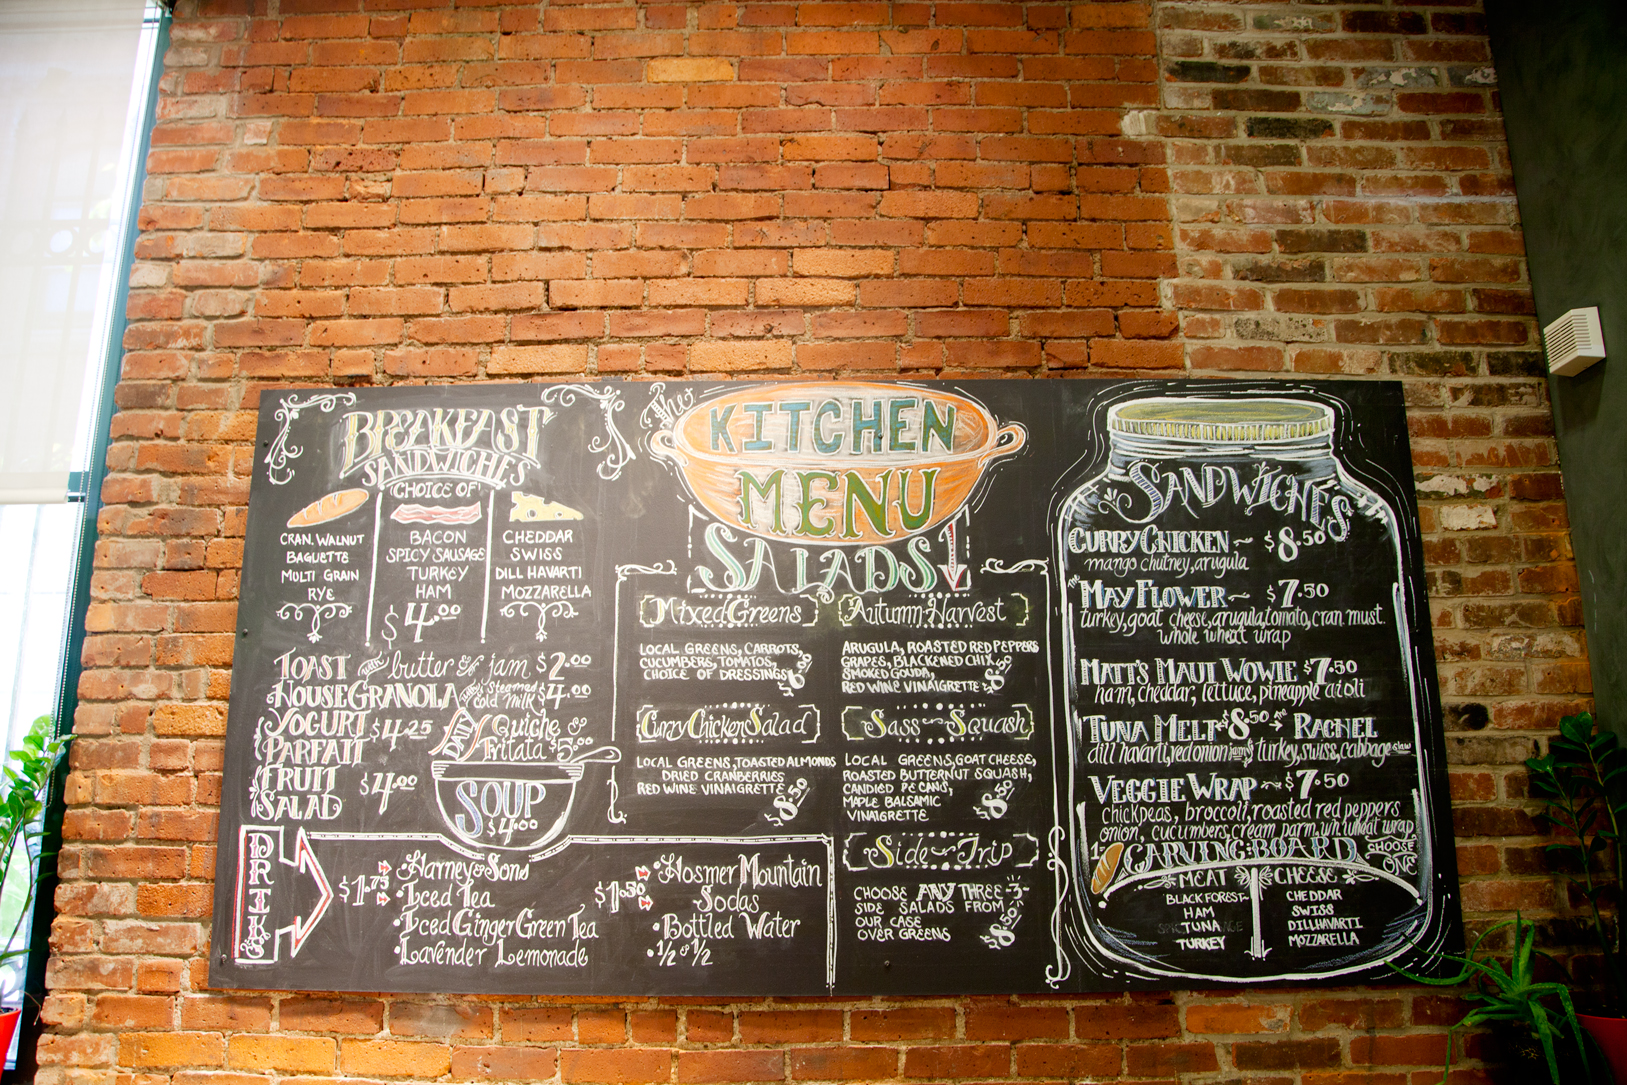 BREAKFAST
SANDWICHES
(CHOICE OF)
CRAN. WALNUT
BAGUETTE
MULTI GRAIN
RYE
BACON
SPICY SAUSAGE
TURKEY
HAM
$4.00
CHEDDAR
SWISS
DILL HAVARTI
MOZZARELLA
TOAST with butter & jam $2.00
HOUSE GRANOLA with steamed or cold milk $4.00
YOGURT PARFAIT $4.25
FRUIT SALAD $4.00
DAILY Quiche &
Fritata $5.00
SOUP
$4.00
DRINKS
$1.75
• Harney & Sons
• Iced Tea
• Iced Ginger Green Tea
• Lavender Lemonade
$1.50
• Hosmer Mountain
Sodas
• Bottled Water
• 1/2 & 1/2
The
KITCHEN
MENU
SALADS
Mixed Greens
LOCAL GREENS, CARROTS,
CUCUMBERS, TOMATOS,
CHOICE OF DRESSINGS
Curry Chicken Salad
LOCAL GREENS, TOASTED ALMONDS
DRIED CRANBERRIES
RED WINE VINAIGRETTE
$8.50
Autumn Harvest
ARUGULA, ROASTED RED PEPPERS
GRAPES, BLACKENED CHIX,
SMOKED GOUDA,
RED WINE VINAIGRETTE
$8.50
Sass Squash
LOCAL GREENS, GOAT CHEESE,
ROASTED BUTTERNUT SQUASH,
CANDIED PECANS,
MAPLE BALSAMIC
VINAIGRETTE
$8.50
Side Trip
CHOOSE ANY THREE -3-
SIDE SALADS FROM
OUR CASE
OVER GREENS
$8.50
SANDWICHES
CURRY CHICKEN ~ $8.50
mango chutney, arugula
THE MAY FLOWER ~ $7.50
turkey, goat cheese, arugula, tomato, cran must.
whole wheat wrap
MATT'S MAUI WOWIE $7.50
ham, cheddar, lettuce, pineapple aioli
TUNA MELT $8.50 THE RACHEL
dill havarti, red onion jam turkey, swiss, cabbage slaw
VEGGIE WRAP ~ $7.50
chickpeas, broccoli, roasted red peppers
onion, cucumbers, cream parm, wh. wheat wrap
CARVING BOARD CHOOSE ONE
MEAT
BLACK FOREST
HAM
TUNA
TURKEY
CHEESE
CHEDDAR
SWISS
DILL HAVARTI
MOZZARELLA